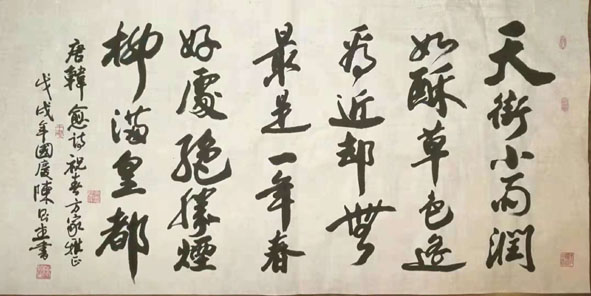 天街小雨潤
如酥草色遙
看近却無
最是一年春
好處絕勝煙
柳滿皇都
唐韓愈詩祝春方家雅正
戊戌年國慶陳書